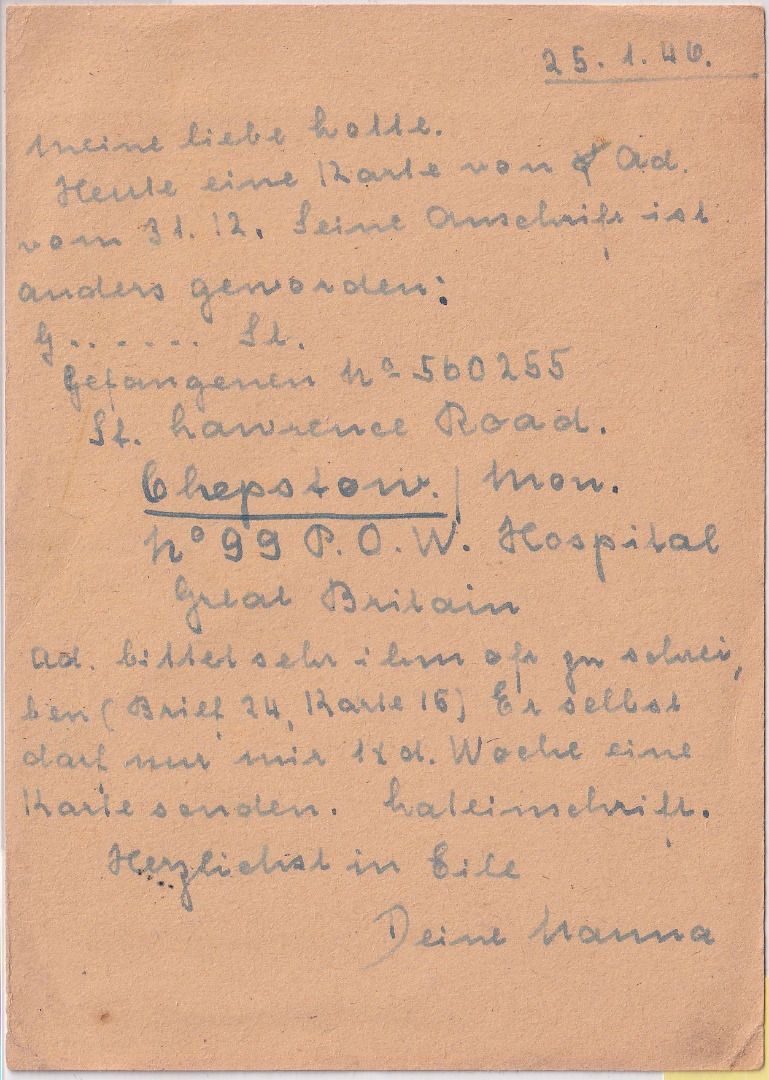 25.1.46.
Meine liebe Lotte.
Heute eine Karte von Ad.
vom 31.12. Seine Anschrift ist
anders geworden:
G...... St.
Gefangenen No 560255
St. Lawrence Road.
Chepstow. / Mon.
No 99 P.O.W. Hospital
Great Britain
Ad. bittet sehr ihm oft zu schrei,
ben (Brief 24, Karte 15) Er selbst
darf nur mir 1x d. Woche eine
Karte senden. Lateinschrift.
Herzlichst in Eile
Deine Hanna